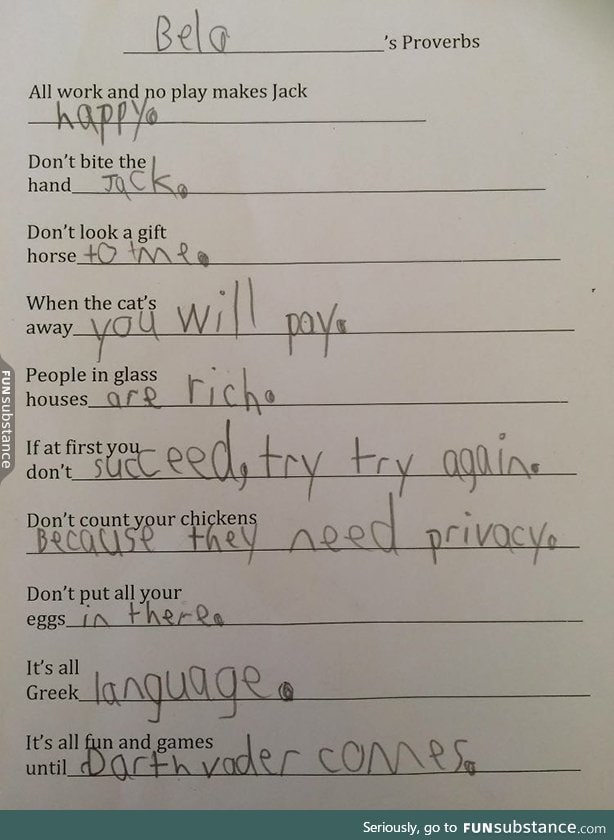 Bela 's Proverbs
All work and no play makes Jack
happy.
Don't bite the
hand Jack.
Don't look a gift
horse to me.
When the cat's
away you will pay.
People in glass
houses are rich.
If at first you
don't succeed, try try again.
Don't count your chickens
Because they need privacy.
Don't put all your
eggs in there.
It's all
Greek language.
It's all fun and games
until Darth vader comes.
FUNsubstance
Seriously, go to FUNsubstance.com